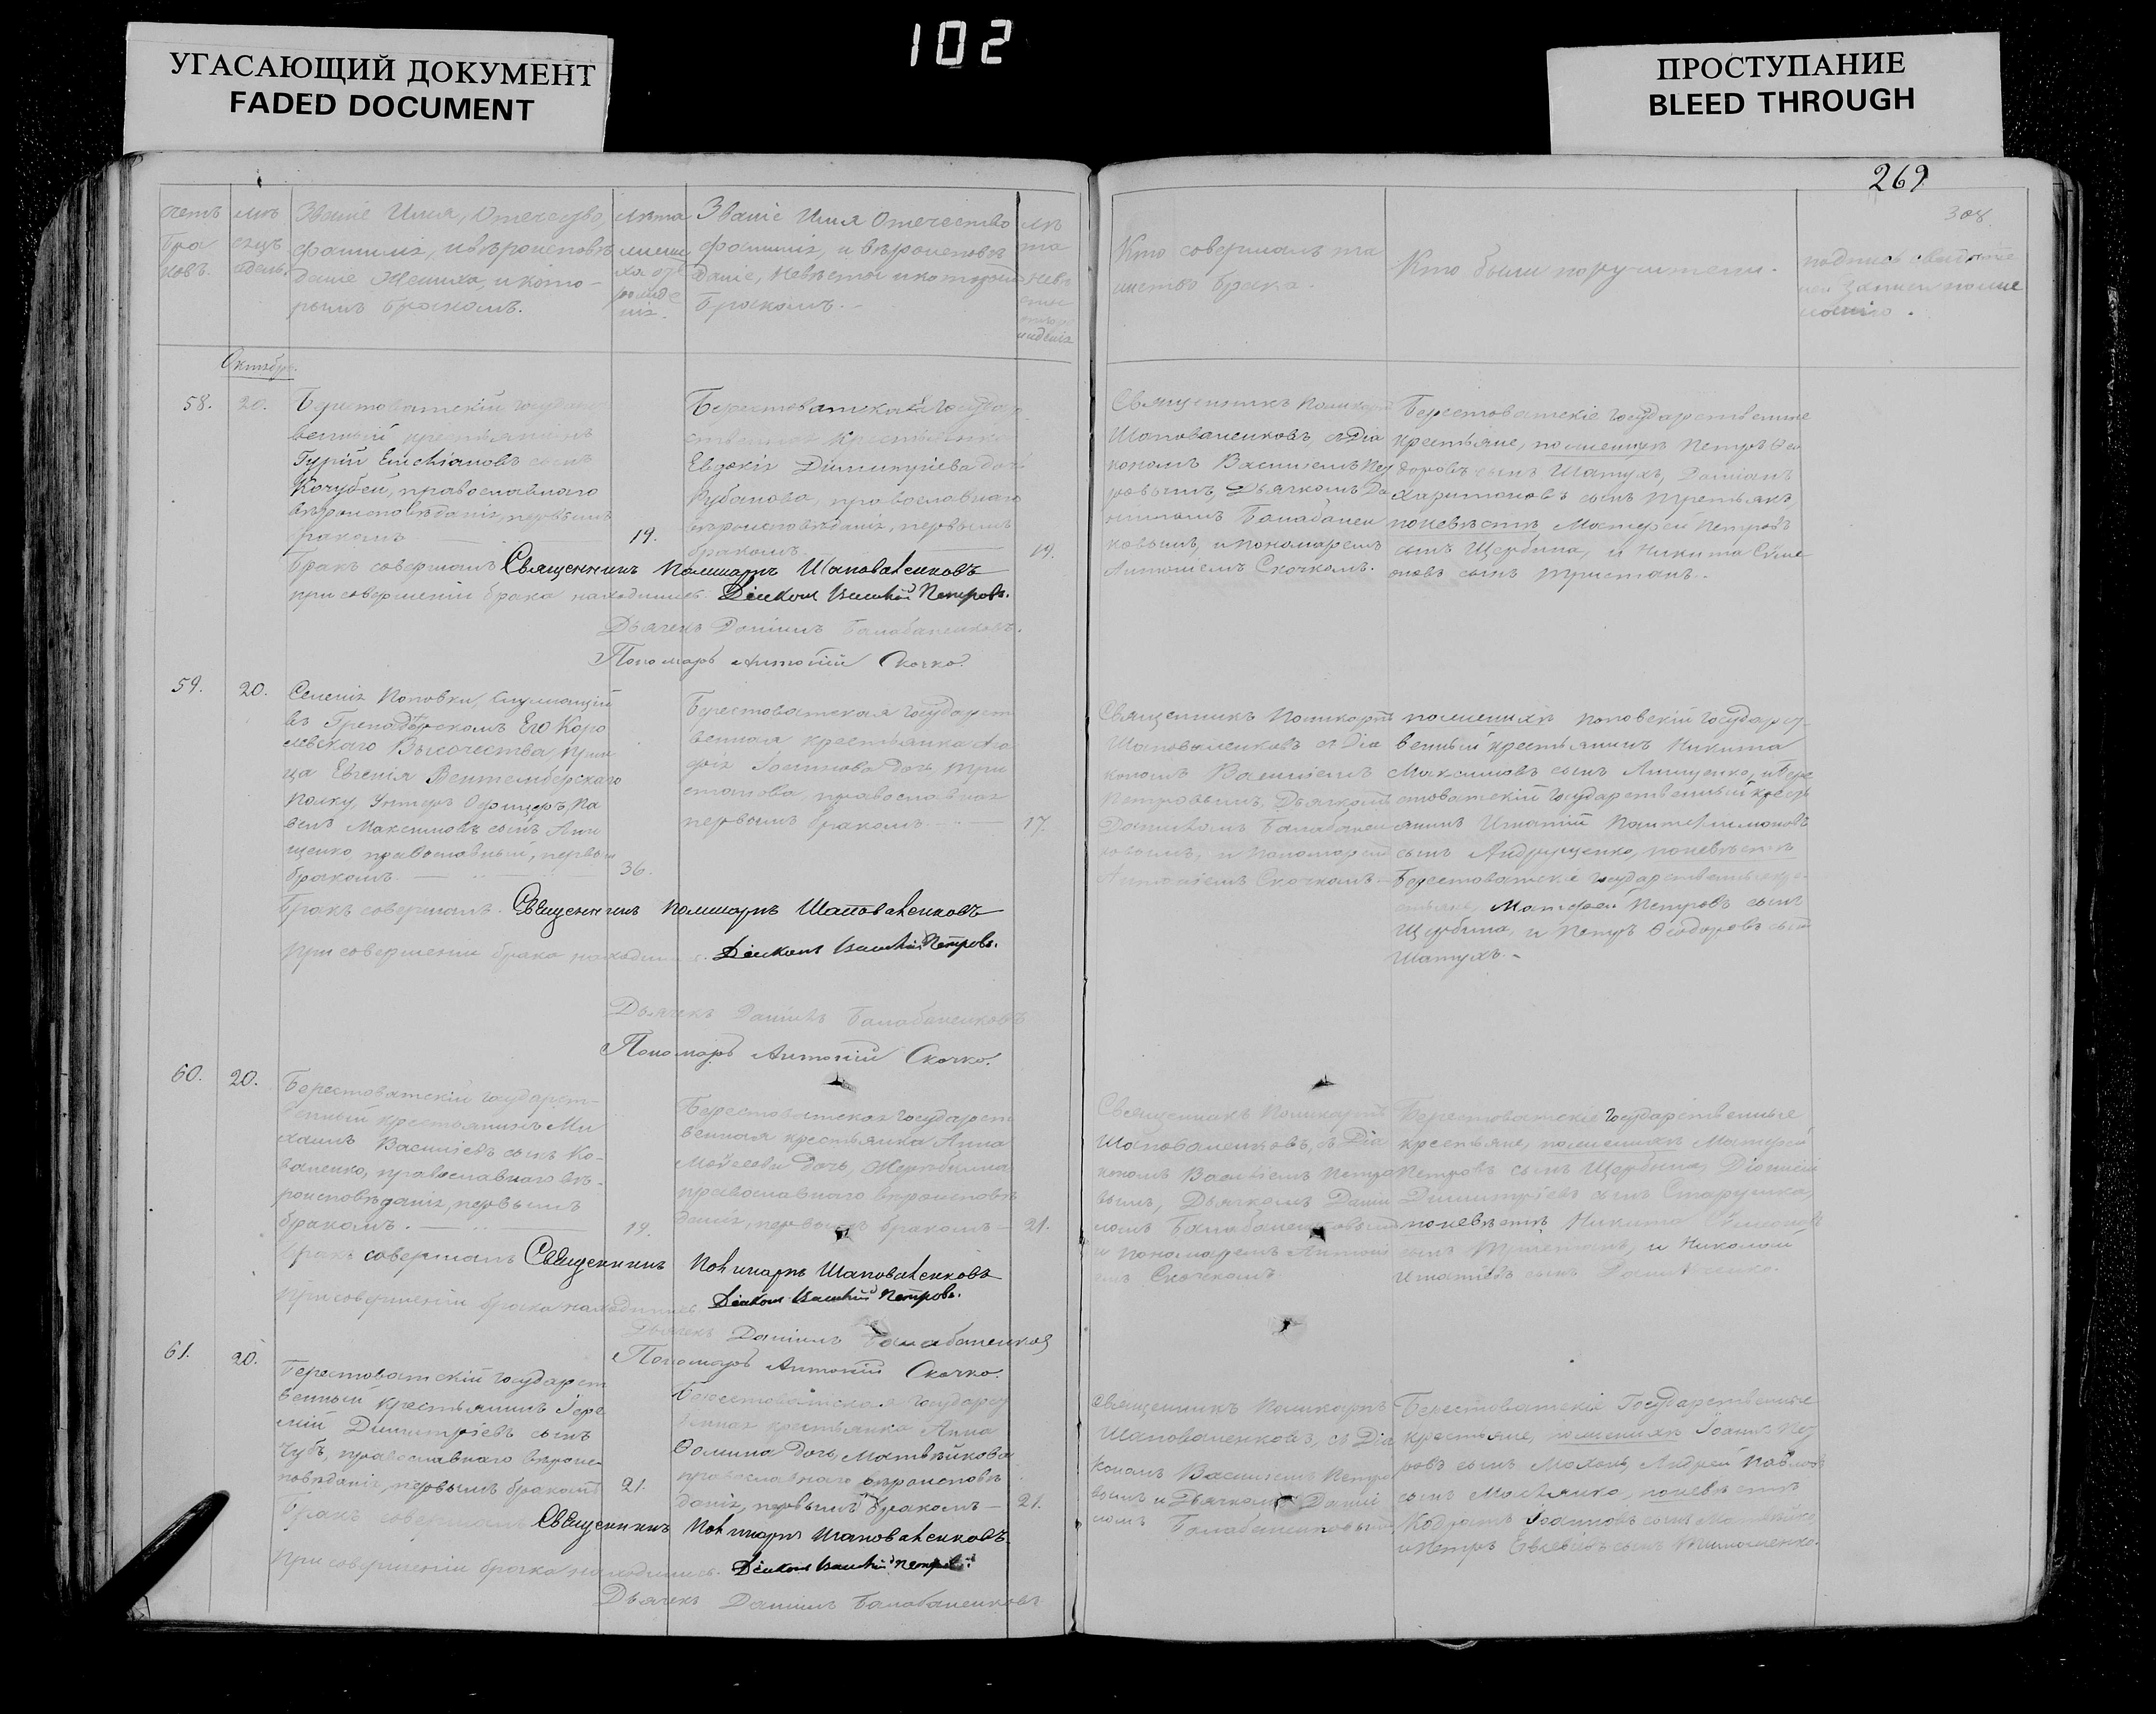 102
УГАСАЮЩИЙ ДОКУМЕНТ
FADED DOCUMENT
ПРОСТУПАНИЕ
BLEED THROUGH
269
308
Званіе Имя, Отечество,
фамилія, и вѣроисповѣ
даніе Жениха, и кото-
рымъ бракомъ.
Званіе Имя Отечество
фамилія, и вѣроисповѣ
даніе, Невѣсты и которымъ
бракомъ.
Кто совершалъ та
инство брака.
Кто были поручители.
Октябрь.
58.
20.
Берестоватскій государст
венный крестьянинъ
Гурій сынъ
Кочубей, православнаго
вѣроисповѣданія, первымъ
бракомъ
19.
Берестоватская государ
ственная крестьянка
Евдокія Димитріева дочь
Рубанова, православнаго
вѣроисповѣданія, первымъ
бракомъ.
19.
Священникъ Поликарпъ
Шаповаленковъ, съ Діа
кономъ Василіемъ Пет
ровымъ, Дьячкомъ Да
ніиломъ Балабанен
ковымъ, и пономаремъ
Антоніемъ Скочкомъ.
Берестоватскіе государственные
крестьяне, по женихѣ Петръ Ѳео
доровъ сынъ Шатухъ, Даміанъ
Харитоновъ сынъ Третьякъ,
по невѣстѣ Матфей Петровъ
сынъ Щербина, и Никита Симе
оновъ сынъ Тристанъ.
Бракъ совершалъ Священникъ Поликарпъ Шаповаленковъ
при совершеніи брака находились. Діаконъ Василій Петровъ.
Дьячекъ Даніилъ Балабаненковъ.
Пономарь Антоній Скочко.
59.
20.
Селенія Поповки, служащій
въ Гренадерскомъ Его Коро
левскаго Высочества Прин
ца Евгенія Виртембергскаго
полку, Унтеръ Офицеръ Па
велъ Максимовъ сынъ Лищ
щенко православный, первымъ
бракомъ.
36.
Берестоватская государст
венная крестьянка Ага
фія дочь Три
станова, православная
первымъ бракомъ
17.
Священникъ Поликарпъ
Шаповаленковъ съ Діа
кономъ Василіемъ
Петровымъ, Дьячкомъ
Даніиломъ Балабанен
ковымъ, и Пономаремъ
Антоніемъ Скочкомъ
по женихѣ Поповскій государст
венный крестьянинъ Никита
Максимовъ сынъ Лищенко, и Бере
стоватскій государственный кресть
янинъ Игнатій Пантелимоновъ
сынъ Андрущенко, по невѣстѣ
Берестоватскіе государственные кре
стьяне, Матфей Петровъ сынъ
Щербина, и Петръ Ѳеодоровъ сынъ
Шатухъ.
Бракъ совершалъ. Священникъ Поликарпъ Шаповаленковъ
При совершеніи брака находились. Діаконъ Василій Петровъ.
Дьячекъ Даніилъ Балабаненковъ
Пономарь Антоній Скочко.
60.
20.
Берестоватскій государст-
венный крестьянинъ Ми
хаилъ Василіевъ сынъ Ко-
валенко, православнаго вѣ-
роисповѣданія, первымъ
бракомъ.
19.
Берестоватская государст
венная крестьянка Анна
Моѵсеева дочь,
православнаго вѣроисповѣ
данія, первымъ бракомъ
21.
Священникъ Поликарпъ
Шаповаленковъ, съ Діа
кономъ Василіемъ Петро
вымъ, Дьячкомъ Дані
ломъ Балабаненковымъ
и Пономаремъ Антоні
емъ Скочкомъ
Берестоватскіе государственные
крестьяне, по женихѣ Матфей
Петровъ сынъ Щербина, Діонисій
Димитріевъ сынъ Старушка,
по невѣстѣ Никита Симеоновъ
сынъ Тристанъ, и Николай
Игнатіевъ сынъ
Бракъ совершалъ Священникъ Поликарпъ Шаповаленковъ
При совершеніи брака находились. Діаконъ Василій Петровъ.
Дьячекъ Даніилъ Балабаненковъ
Пономарь Антоній Скочко.
61.
20.
Берестоватскій государст
венный крестьянинъ Іере
мій Димитріевъ сынъ
Чубъ, православнаго вѣроис-
повѣданія, первымъ бракомъ
21.
Берестоватская государст
венная крестьянка Анна
Ѳомина дочь, Матвѣйкова
православнаго вѣроисповѣ
данія, первымъ бракомъ
21.
Священникъ Поликарпъ
Шаповаленковъ, съ Діа
кономъ Василіемъ Петро
вымъ и Дьячкомъ Даніи
ломъ Балабаненковымъ
Берестоватскіе Государственные
крестьяне, по женихѣ Іоаннъ Пет
ровъ сынъ Андрей Павловъ
сынъ по невѣстѣ
Кодратъ Іоанновъ сынъ
и Петръ сынъ Тимошенко.
Бракъ совершалъ Священникъ Поликарпъ Шаповаленковъ.
При совершеніи брака находились. Діаконъ Василій Петровъ.
Дьячекъ Даніилъ Балабаненковъ